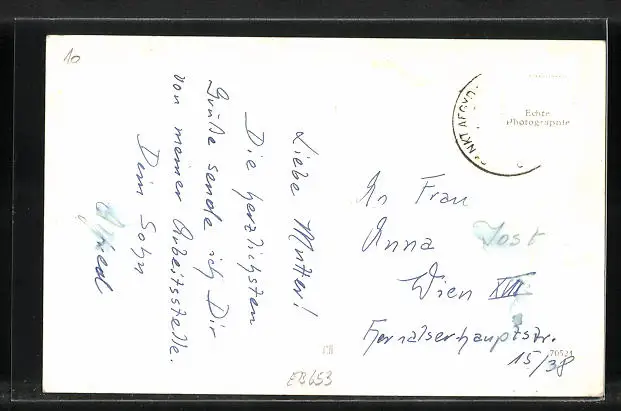 10
Liebe Mutter!
Die herzlichsten
Grüße sende ich Dir
von meiner Arbeitsstelle.
Dein Sohn
Alfred
NKT AEGYD
Echte
Photographie
An Frau
Anna Jost
Wien XVII
Hernalserhauptstr.
15/38
70524
EB653